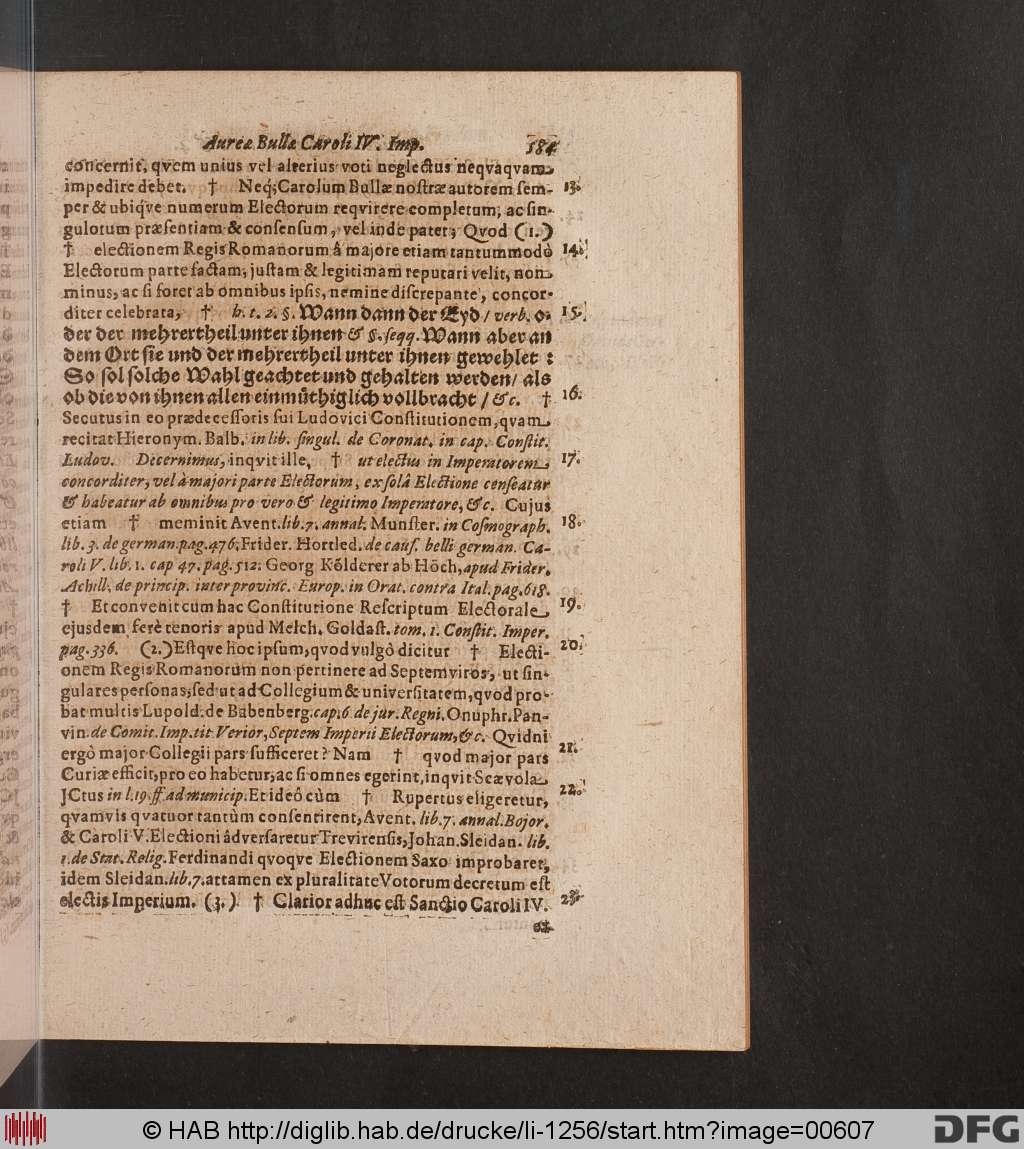 Aureæ Bullæ Caroli IV. Imp. 584
concernit, qvem unius vel alterius voti neglectus neqvaqvam
impedire debet. † Neq; Carolum Bullæ noſtræ autorem ſem- 13.
per & ubiq́ve numerum Electorum reqvirere completum, ac ſin-
gulotum præſentiam & conſenſum, vel inde patet; Qvod (1.)
† electionem Regis Romanorum â majore etiam tantummodò 14.
Electorum parte factam, juſtam & legitimam reputari velit, non
minus, ac ſi foret ab omnibus ipſis, nemine diſcrepante, concor-
diter celebrata, † h. t. 2. §. Wann dann der Eyd / verb. o- 15.
der der mehrertheil unter ihnen & §. ſeqq. Wann aber an
dem Ort ſie und der mehrertheil unter ihnen gewehlet :
So ſol ſolche Wahl geachtet und gehalten werden / als
ob die von ihnen allen einmüthiglich vollbracht / &c. † 16.
Secutus in eo prædeceſſoris ſui Ludovici Conſtitutionem, qvam
recitat Hieronym. Balb. in lib. ſingul. de Coronat. in cap. Conſtit.
Ludov. Decernimus, inqvit ille, † ut electus in Imperatorem, 17.
concorditer, vel à majori parte Electorum, ex ſolâ Electione cenſeatur
& habeatur ab omnibus pro vero & legitimo Imperatore, &c. Cujus
etiam † meminit Avent. lib. 7. annal. Munſter. in Coſmograph. 18.
lib. 3. de german. pag. 476. Frider. Hortled. de cauſ. belli german. Ca-
roli V. lib. 1. cap 47. pag. 512. Georg Kölderer ab Höch, apud Frider.
Achill. de princip. inter provinc. Europ. in Orat. contra Ital. pag. 618.
† Et convenit cum hac Conſtitutione Reſcriptum Electorale 19.
ejusdem ferè tenoris apud Melch. Goldaſt. tom. 1. Conſtit. Imper.
pag. 336. (2.) Eſtqve hoc ipſum, qvod vulgò dicitur † Electi- 20.
onem Regis Romanorum non pertinere ad Septemviros, ut ſin-
gulares perſonas; ſed ut ad Collegium & univerſitatem, qvod pro-
bat multis Lupold. de Babenberg. cap. 6 de jur. Regni. Onuphr. Pan-
vin. de Comit. Imp. tit Verior, Septem Imperii Electorum, &c. Qvidni
ergò major Collegii pars ſufficeret? Nam † qvod major pars 21.
Curiæ efficit, pro eo habetur, ac ſi omnes egerint, inqvit Scævola
JCtus in l. 19. ff. ad municip. Et ideô cùm † Rupertus eligeretur, 22.
qvamvis qvatuor tantùm conſentirent, Avent. lib. 7. annal. Bojor.
& Caroli V. Electioni âdverſaretur Trevirenſis, Johan. Sleidan. lib.
1. de Stat. Relig. Ferdinandi qvoqve Electionem Saxo improbaret,
idem Sleidan. lib. 7. attamen ex pluralitate Votorum decretum eſt
electis Imperium. (3.) † Clarior adhuc eſt Sanctio Caroli IV. 23.
© HAB http://diglib.hab.de/drucke/li-1256/start.htm?image=00607
DFG